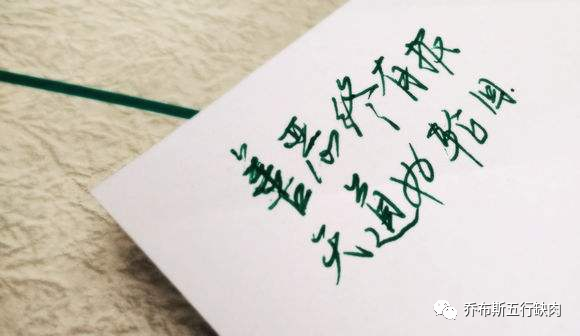 善恶终有报
天道好轮回
乔布斯五行缺肉